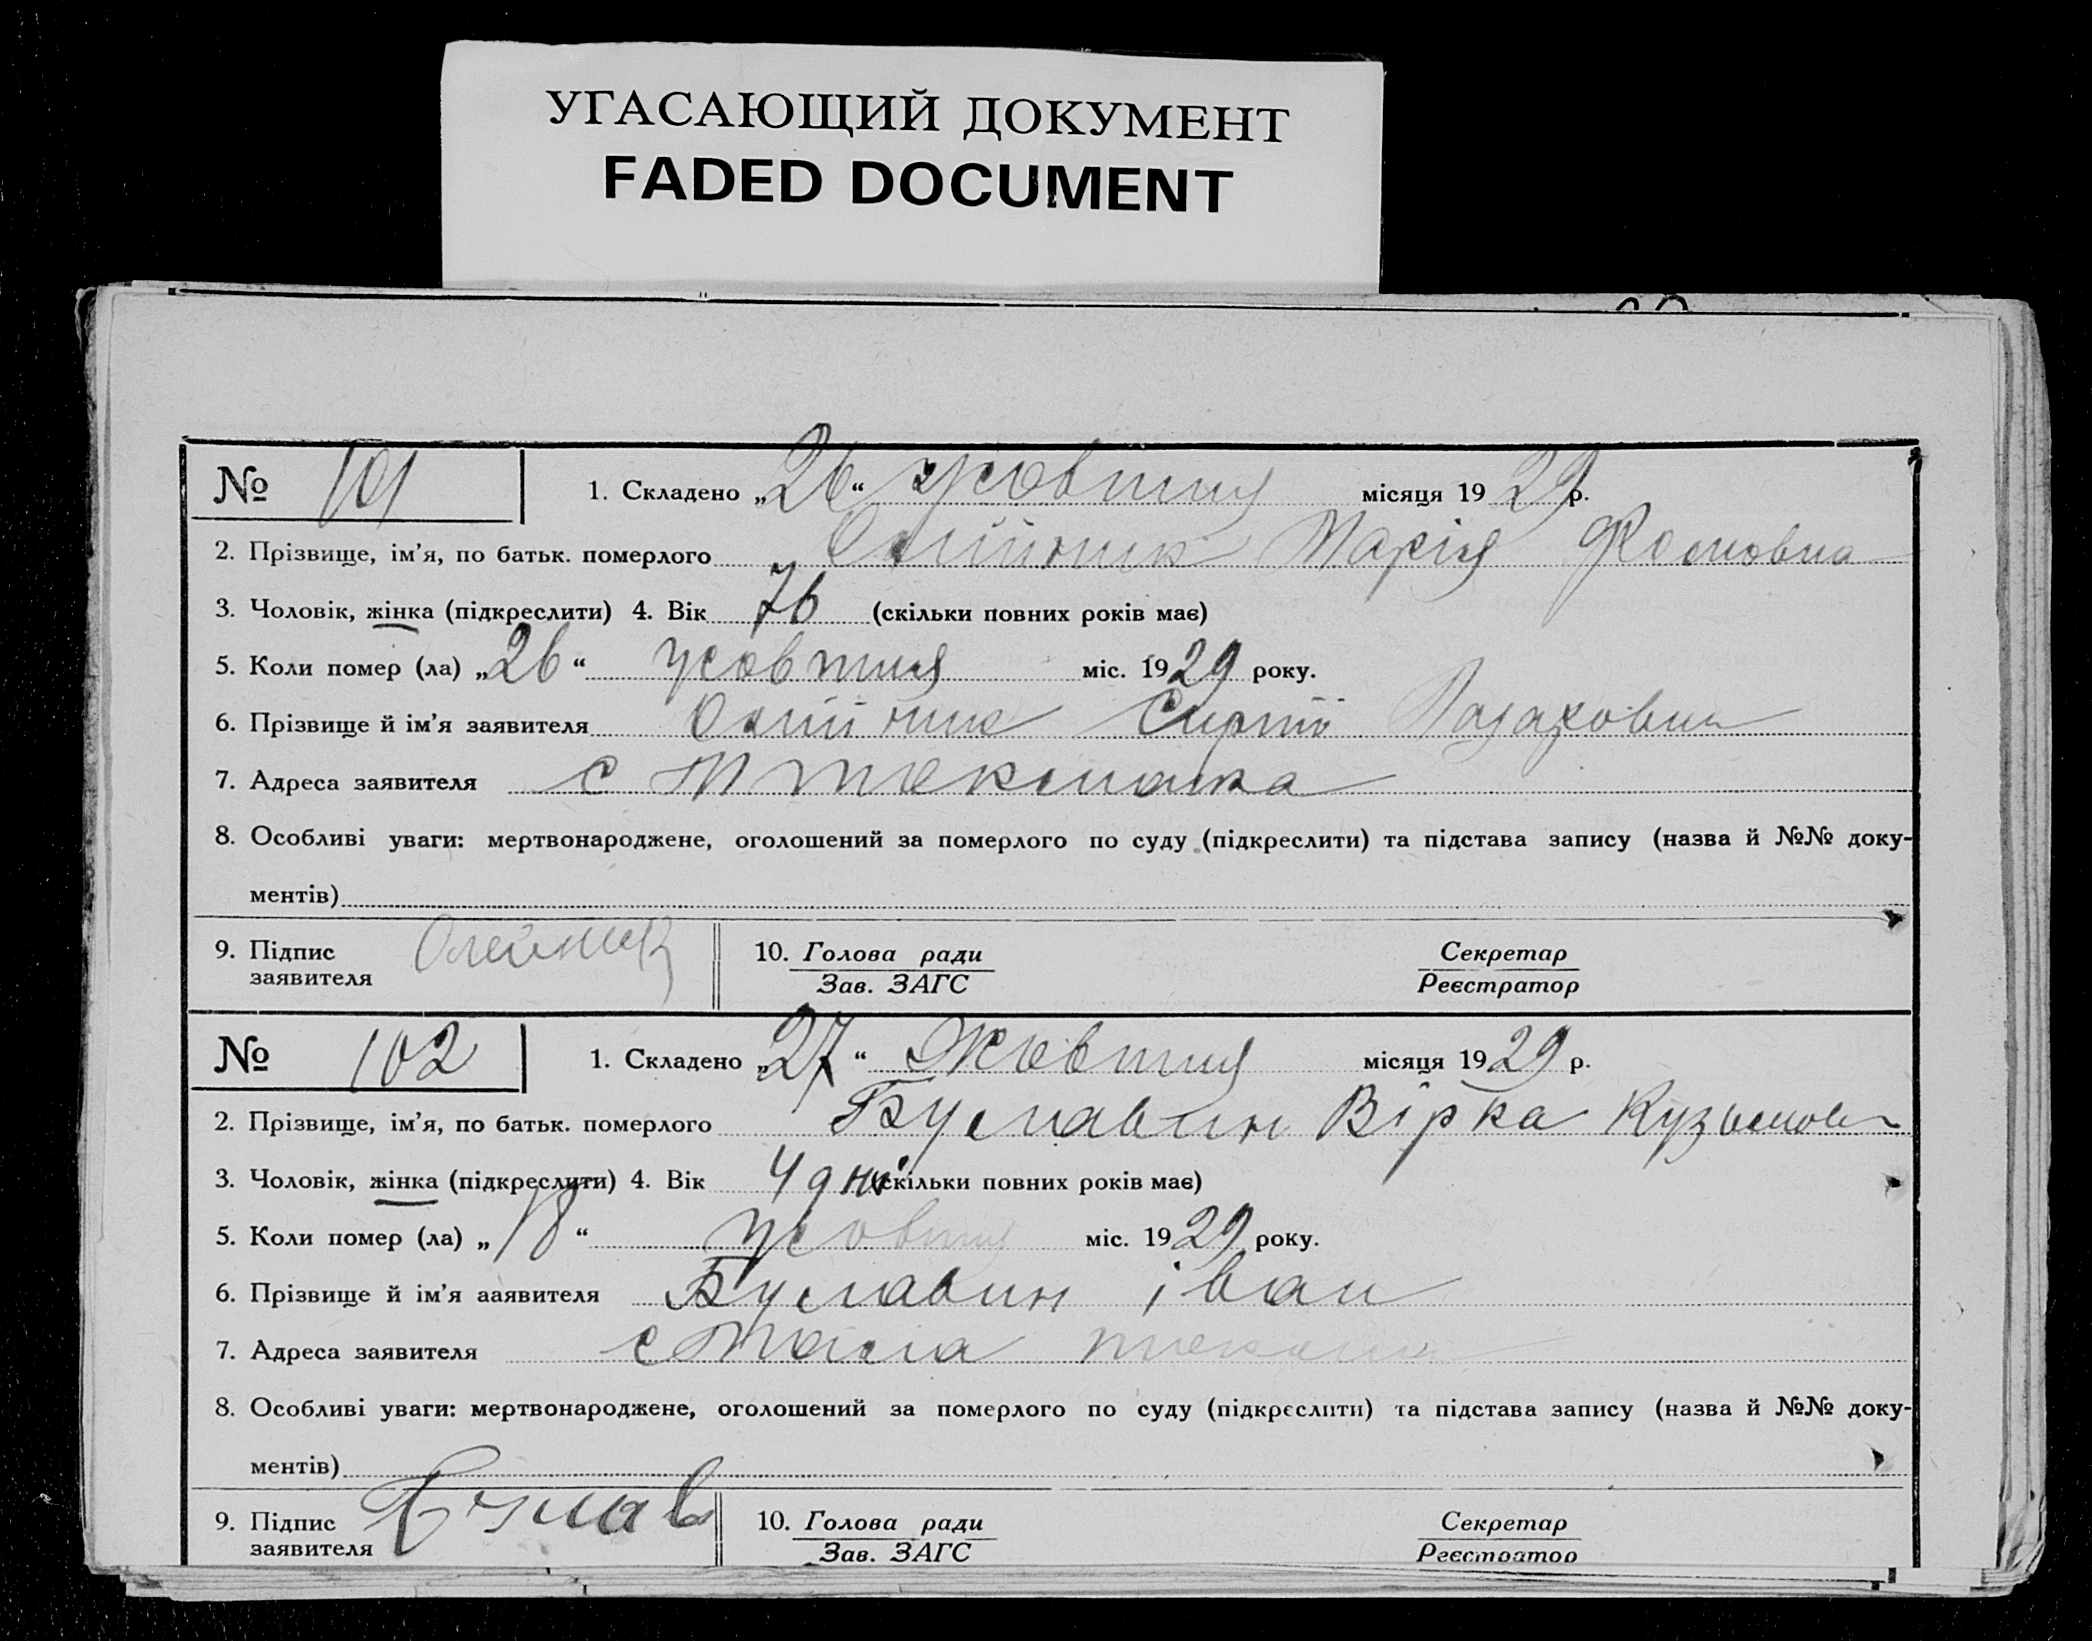 УГАСАЮЩИЙ ДОКУМЕНТ
FADED DOCUMENT
№ 101
1. Складено „26“ жовтня місяця 1929 р.
2. Прізвище, ім’я, по батьк. померлого Олійник Марія Фомовна
3. Чоловік, жінка (підкреслити) 4. Вік 76 (скільки повних років має)
5. Коли помер (ла) „26“ жовтня міс. 1929 року.
6. Прізвище й ім’я заявителя Олійник
7. Адреса заявителя с
8. Особливі уваги: мертвонароджене, оголошений за померлого по суду (підкреслити) та підстава запису (назва й №№ доку-
ментів)
9. Підпис заявителя Олейник
10. Голова ради Зав. ЗАГС Секретар Реєстратор
№ 102
1. Складено „27“ Жовтня місяця 1929 р.
2. Прізвище, ім’я, по батьк. померлого Буславин Вірка Кузьмов
3. Чоловік, жінка (підкреслити) 4. Вік 4 дні (скільки повних років має)
5. Коли помер (ла) „18“ жовтня міс. 1929 року.
6. Прізвище й ім’я ааявителя Буславин іван
7. Адреса заявителя с
8. Особливі уваги: мертвонароджене, оголошений за померлого по суду (підкреслити) та підстава запису (назва й №№ доку-
ментів)
9. Підпис заявителя Буслав
10. Голова ради Зав. ЗАГС Секретар Реєстратор